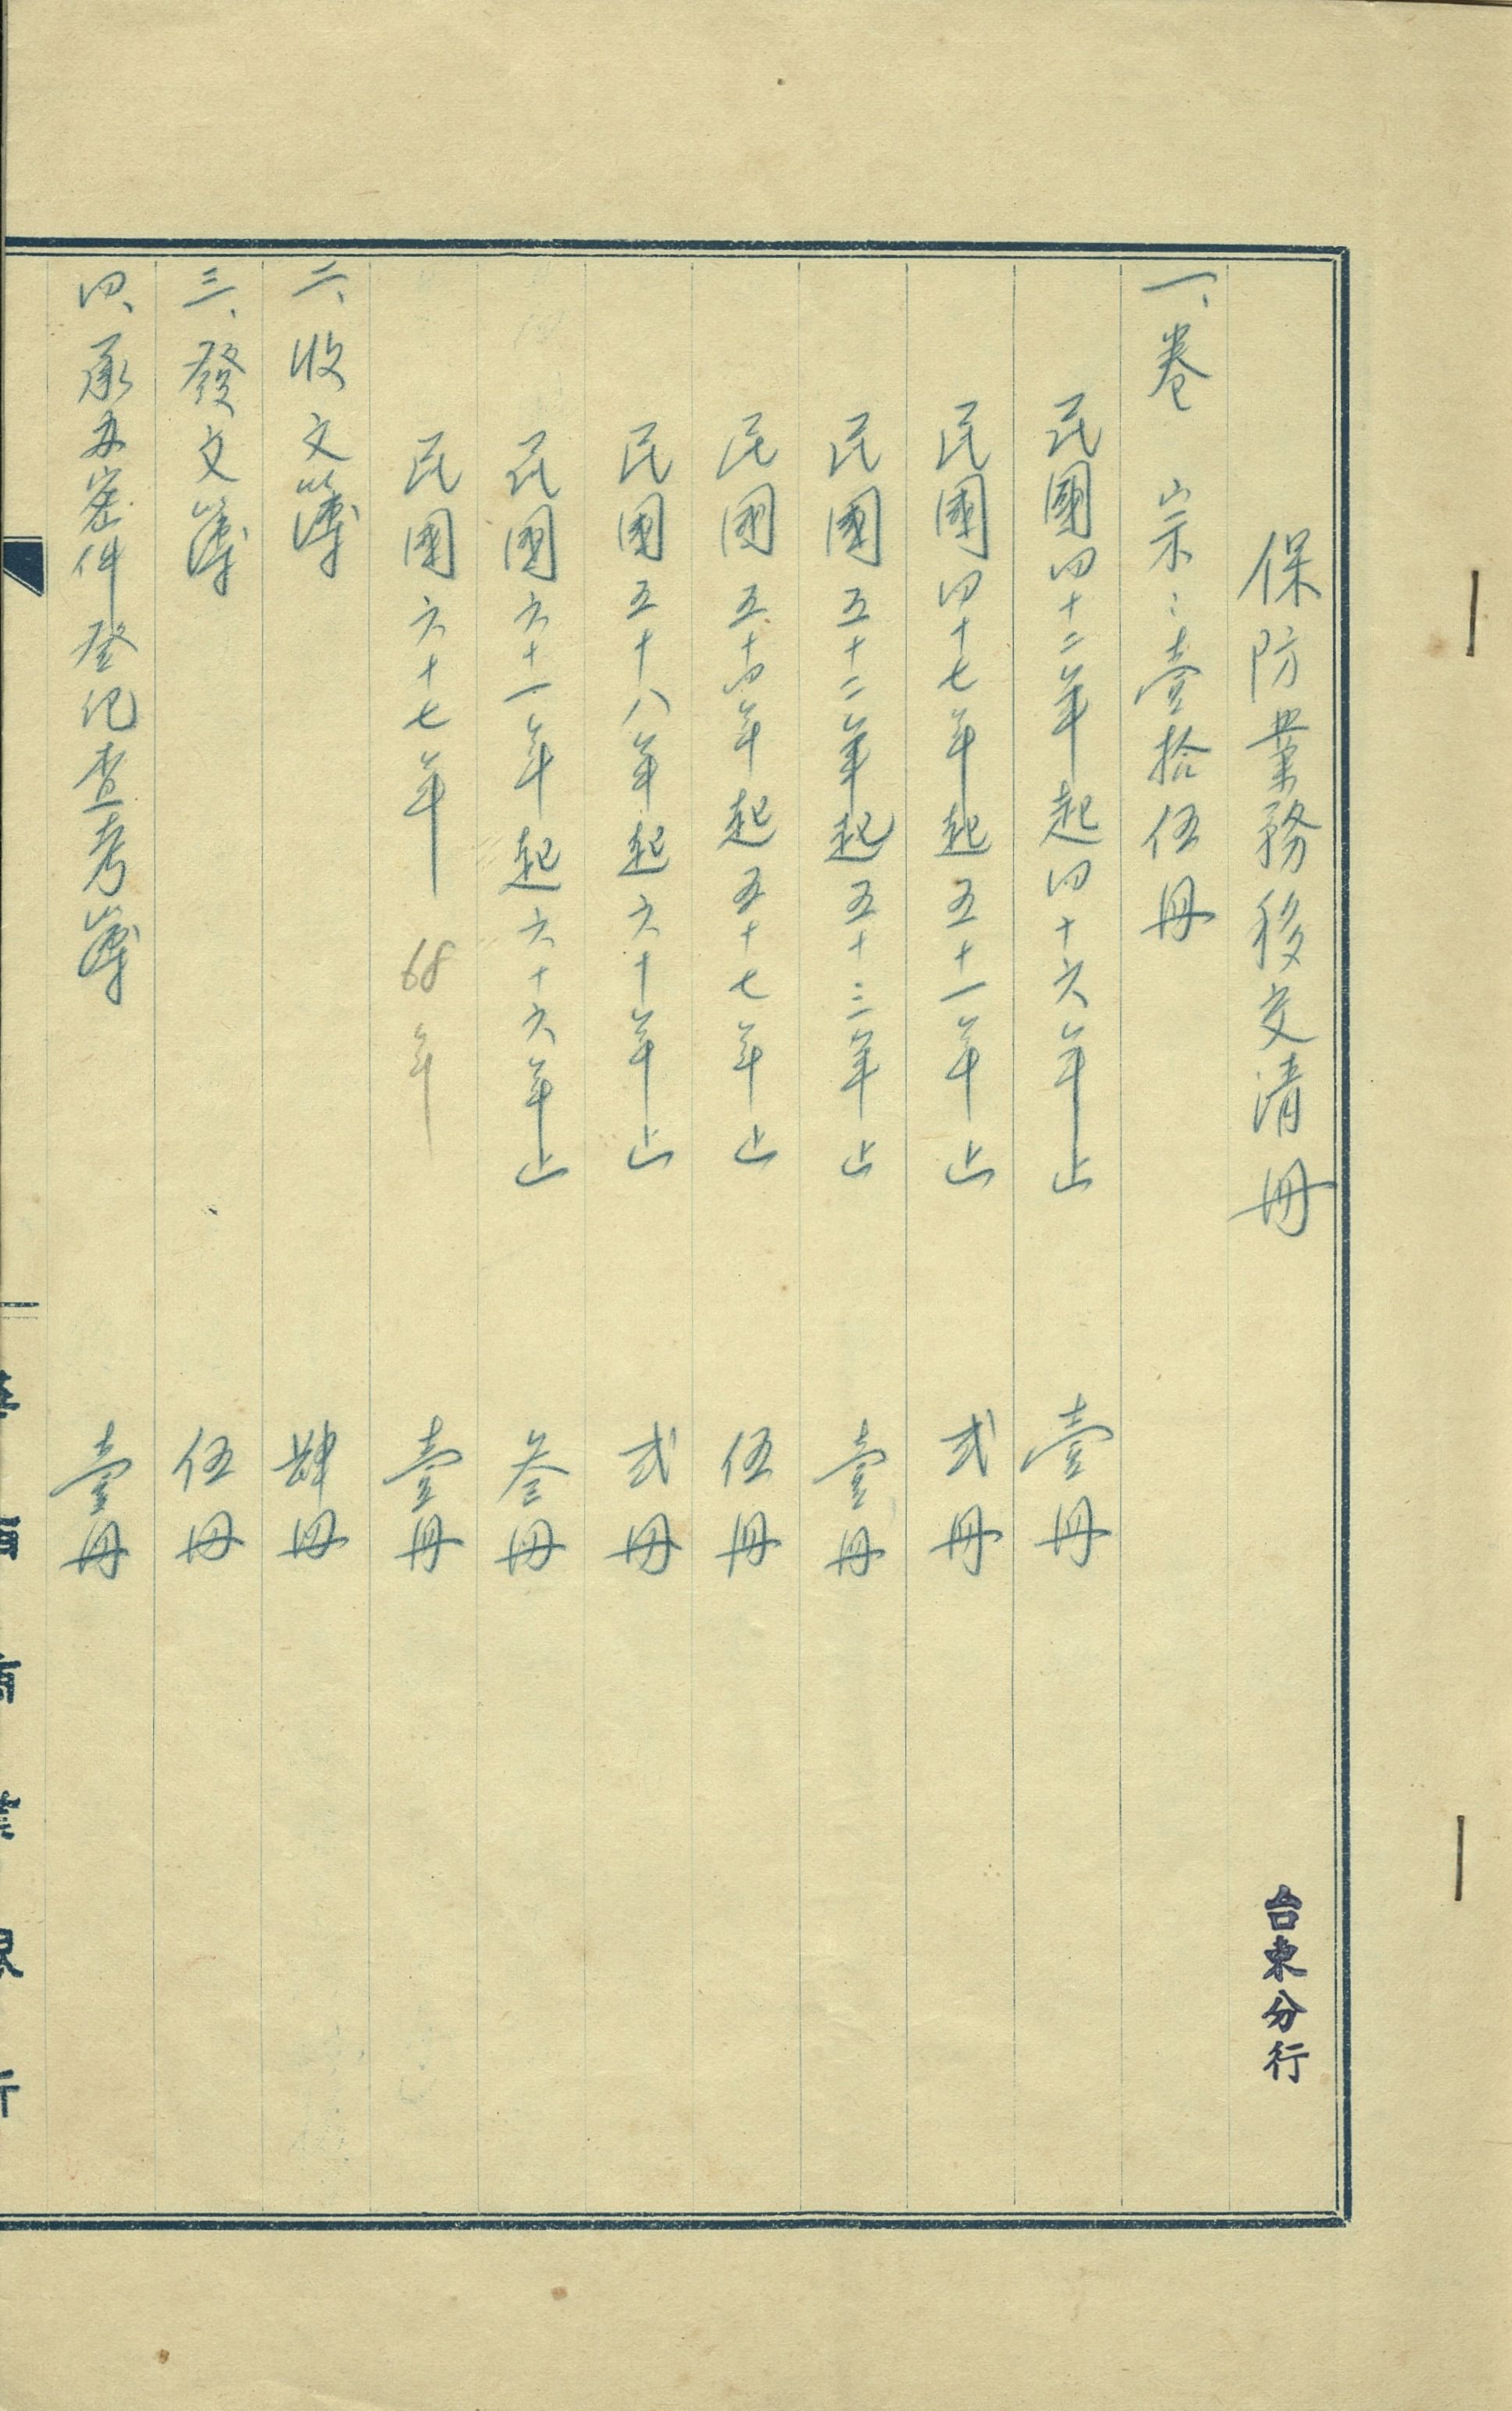 保防業務移交清冊 台東分行
一、卷 宗：壹拾伍冊
民國四十二年起四十六年止 壹冊
民國四十七年起五十一年止 弍冊
民國五十二年起五十三年止 壹冊
民國五十四年起五十七年止 伍冊
民國五十八年起六十年止 弍冊
民國六十一年起六十六年止 叁冊
民國六十七年 68年 壹冊
二、收文簿 肆冊
三、發文簿 伍冊
四、承办密件登记查考簿 壹冊